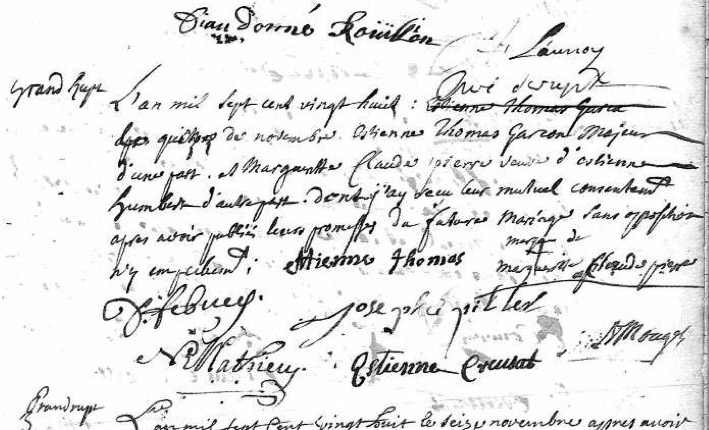 Diaudonné Roüillon
Launoy
Curé de rupt
grand rupt
L'an mil sept cent vingt huit : Estienne Thomas Garco
quatorze de novembre Estienne Thomas Garcon Majeur
d'une part, et Margueritte Claude pierre veuve d'estienne
humbert d'autre part. dont j'ay receu leur mutuel consentemt
apres avoir publié leurs promesses de future Mariage sans opposition
n'y empechemt ; Etienne thomas marque de
marguerite Claude pierre
Joseph pillet
N Mathieu Estienne Creusat NMougel
Grandrupt
L'an mil sept Cent vingt huit le seize novembre appres avoir